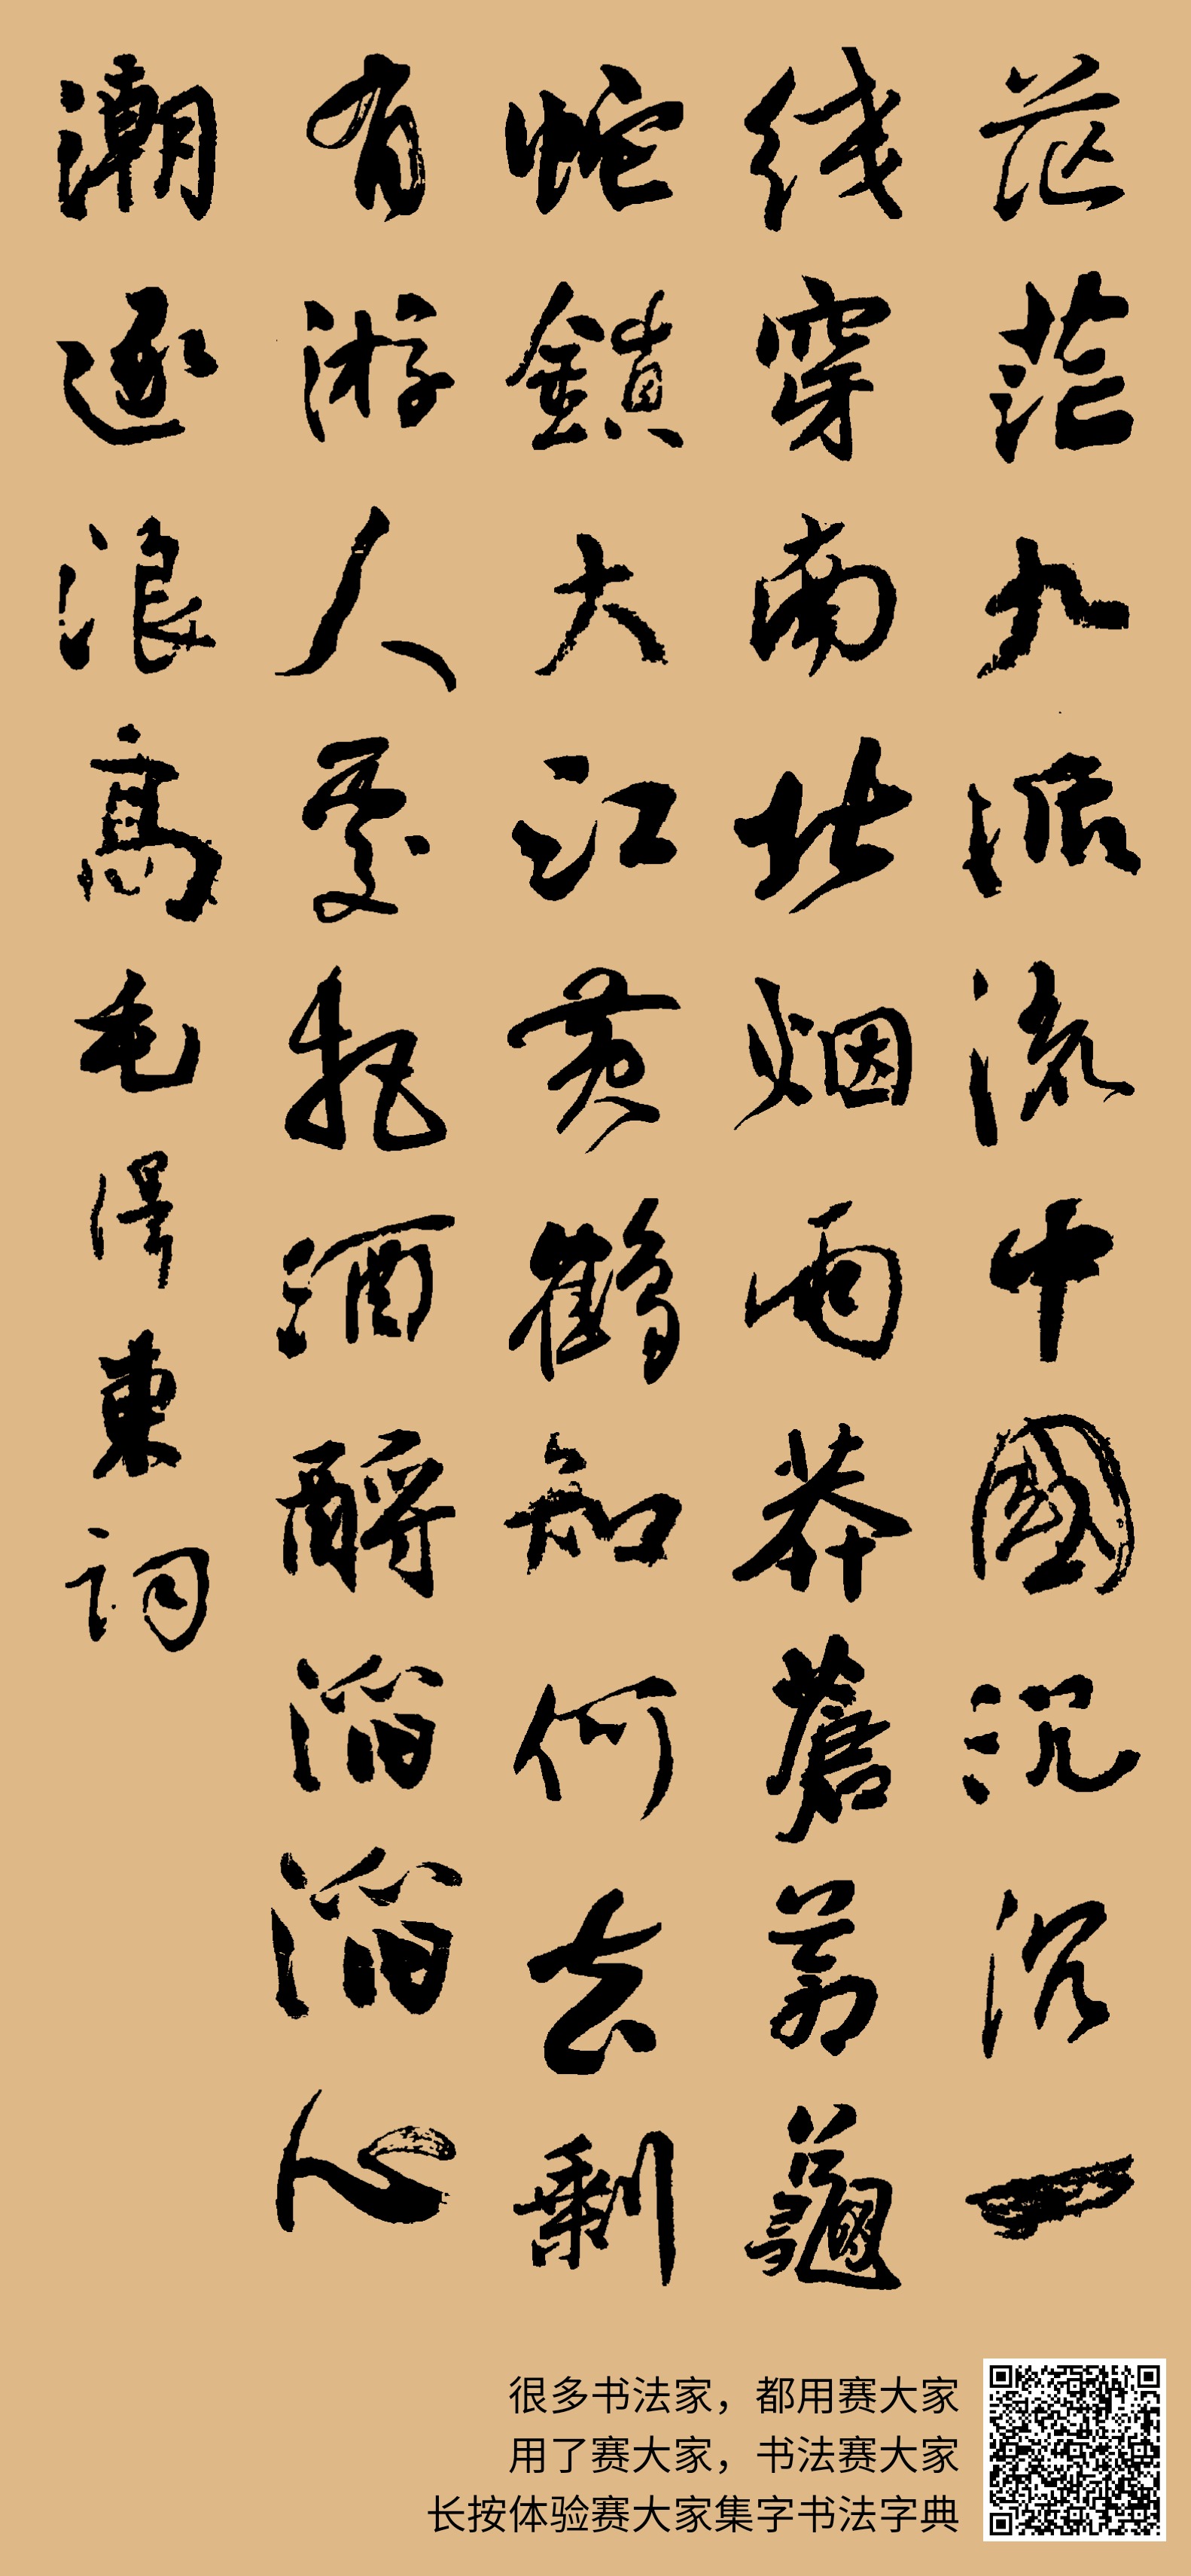 茫茫九派流中國沉沉一
线穿南北烟雨莽蒼苍龜
蛇鎖大江黄鶴知何去剩
有游人處把酒酹滔滔心
潮逐浪高毛澤東词
很多书法家，都用赛大家
用了赛大家，书法赛大家
长按体验赛大家集字书法字典